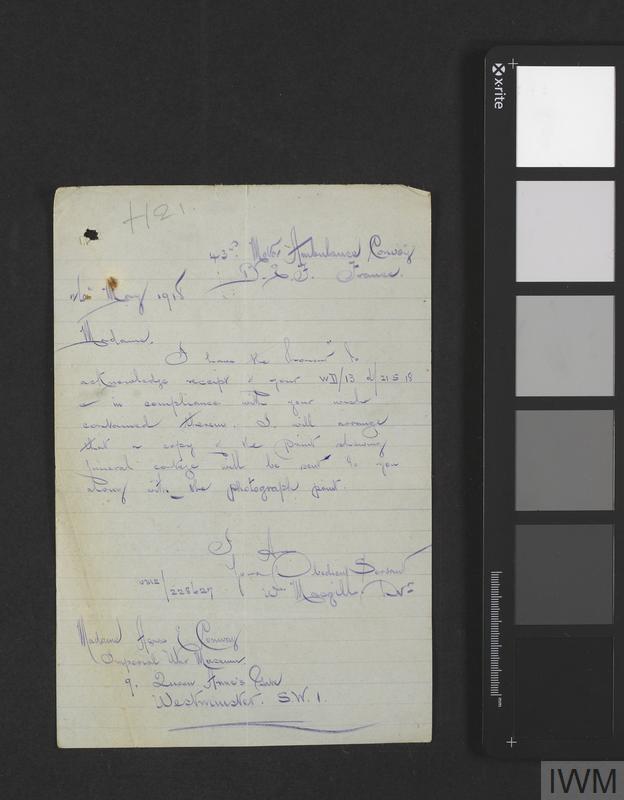 H21.
43rd Motor Ambulance Convoy
B.E.F. France.
May 1918
Madame,
I have the honour to
acknowledge receipt of your WD/13 of 21-5-18
in compliance with your wish
contained therein. I will arrange
that a copy of the print showing
funeral cortege will be sent to you
along with the photograph print.
I Am
Your Obedient Servant
Wm Macgill Dvr
M2/225627
Madame Agnes E Conway
Imperial War Museum
9. Queen Anne's Gate
Westminster. S.W.1.
x-rite
mm
IWM